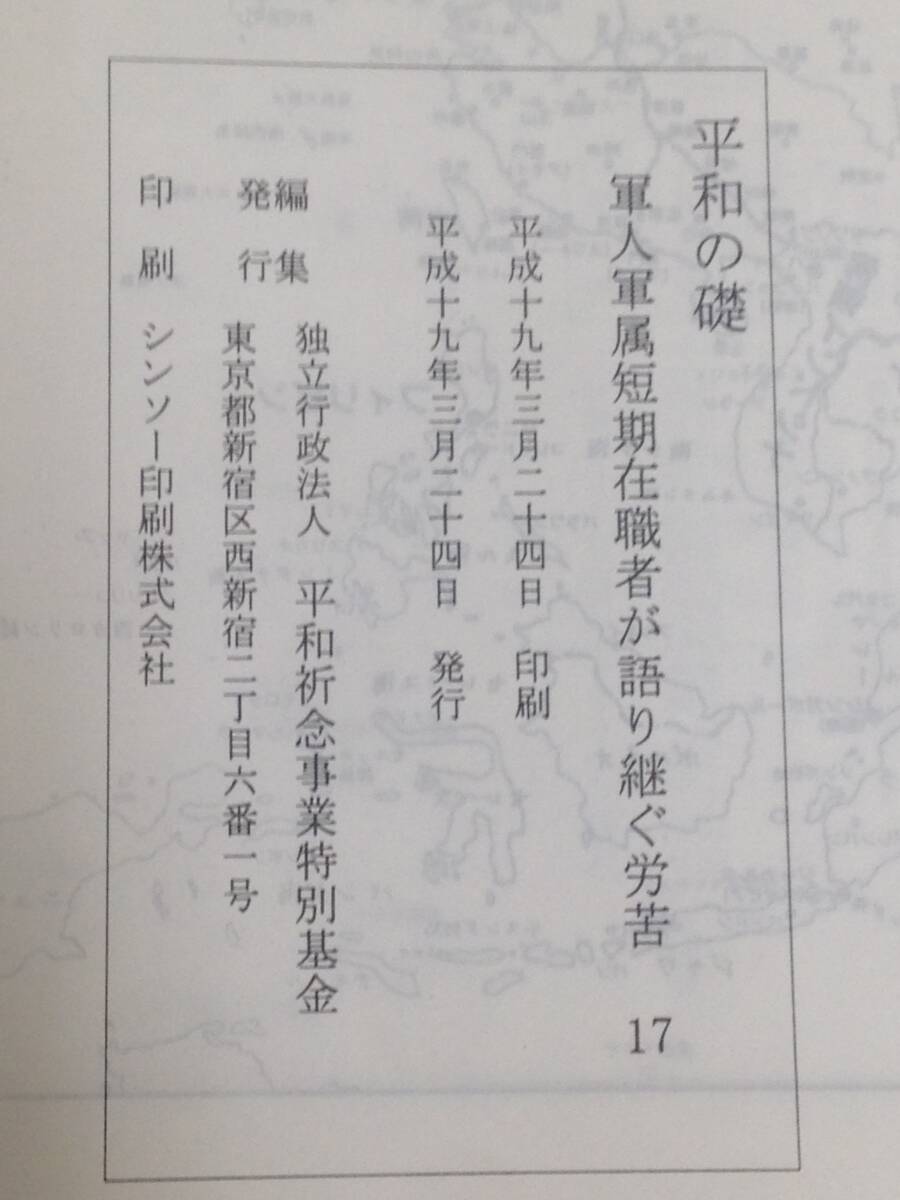 平和の礎
軍人軍属短期在職者が語り継ぐ労苦 17
平成十九年三月二十四日 印刷
平成十九年三月二十四日 発行
編集
発行
独立行政法人 平和祈念事業特別基金
東京都新宿区西新宿二丁目六番一号
印刷 シンソー印刷株式会社